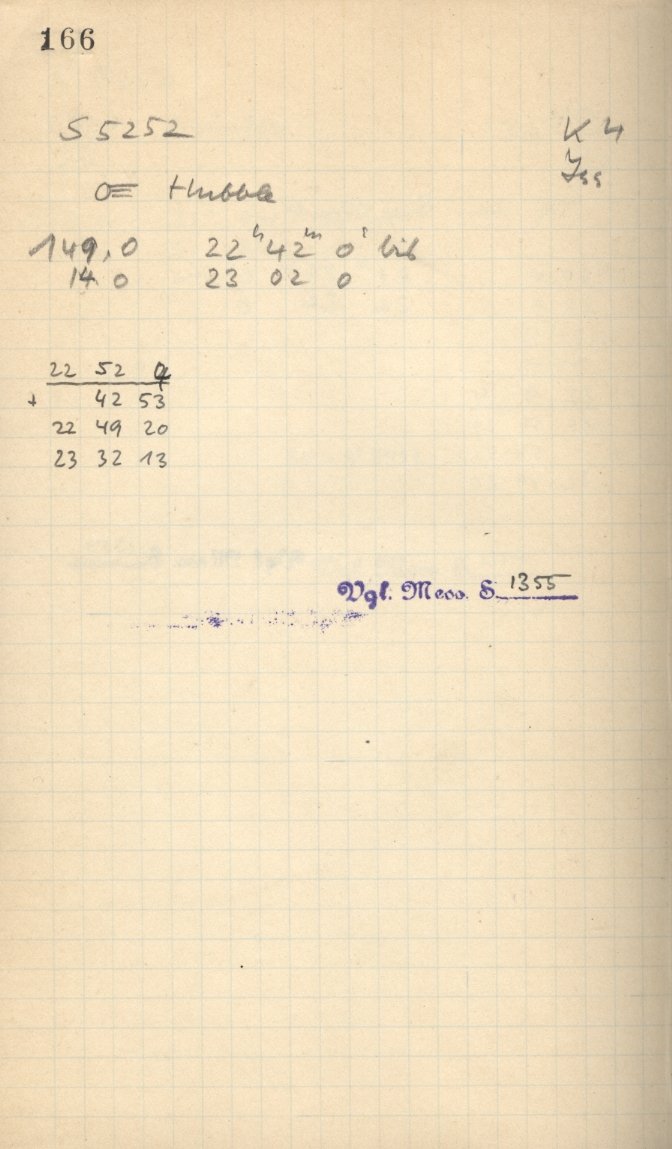 166
S 5252
K 4
Hubble
149,0 22ʰ 42ᵐ 0ˢ bis
14 0 23 02 0
22 52 0
+ 42 53
22 49 20
23 32 13
Vgl. Mess. S. 1355